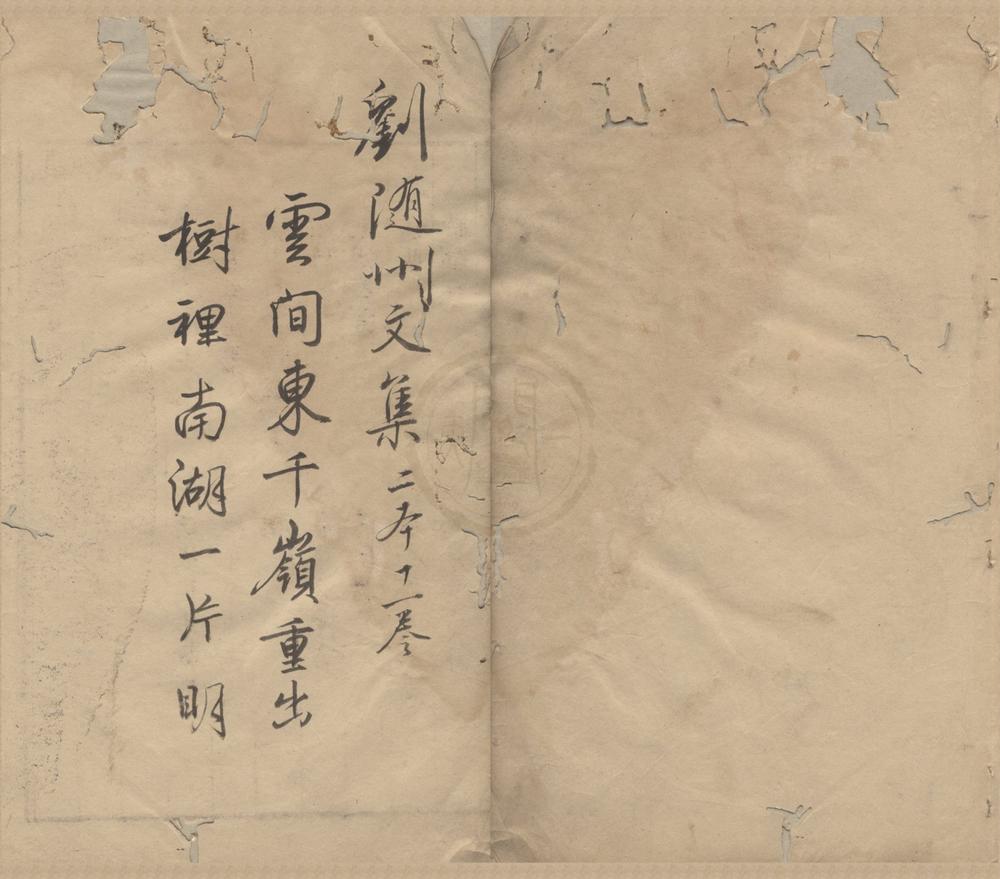 劉随州文集二本十一卷
雲间東千嶺重出
樹裡南湖一片明